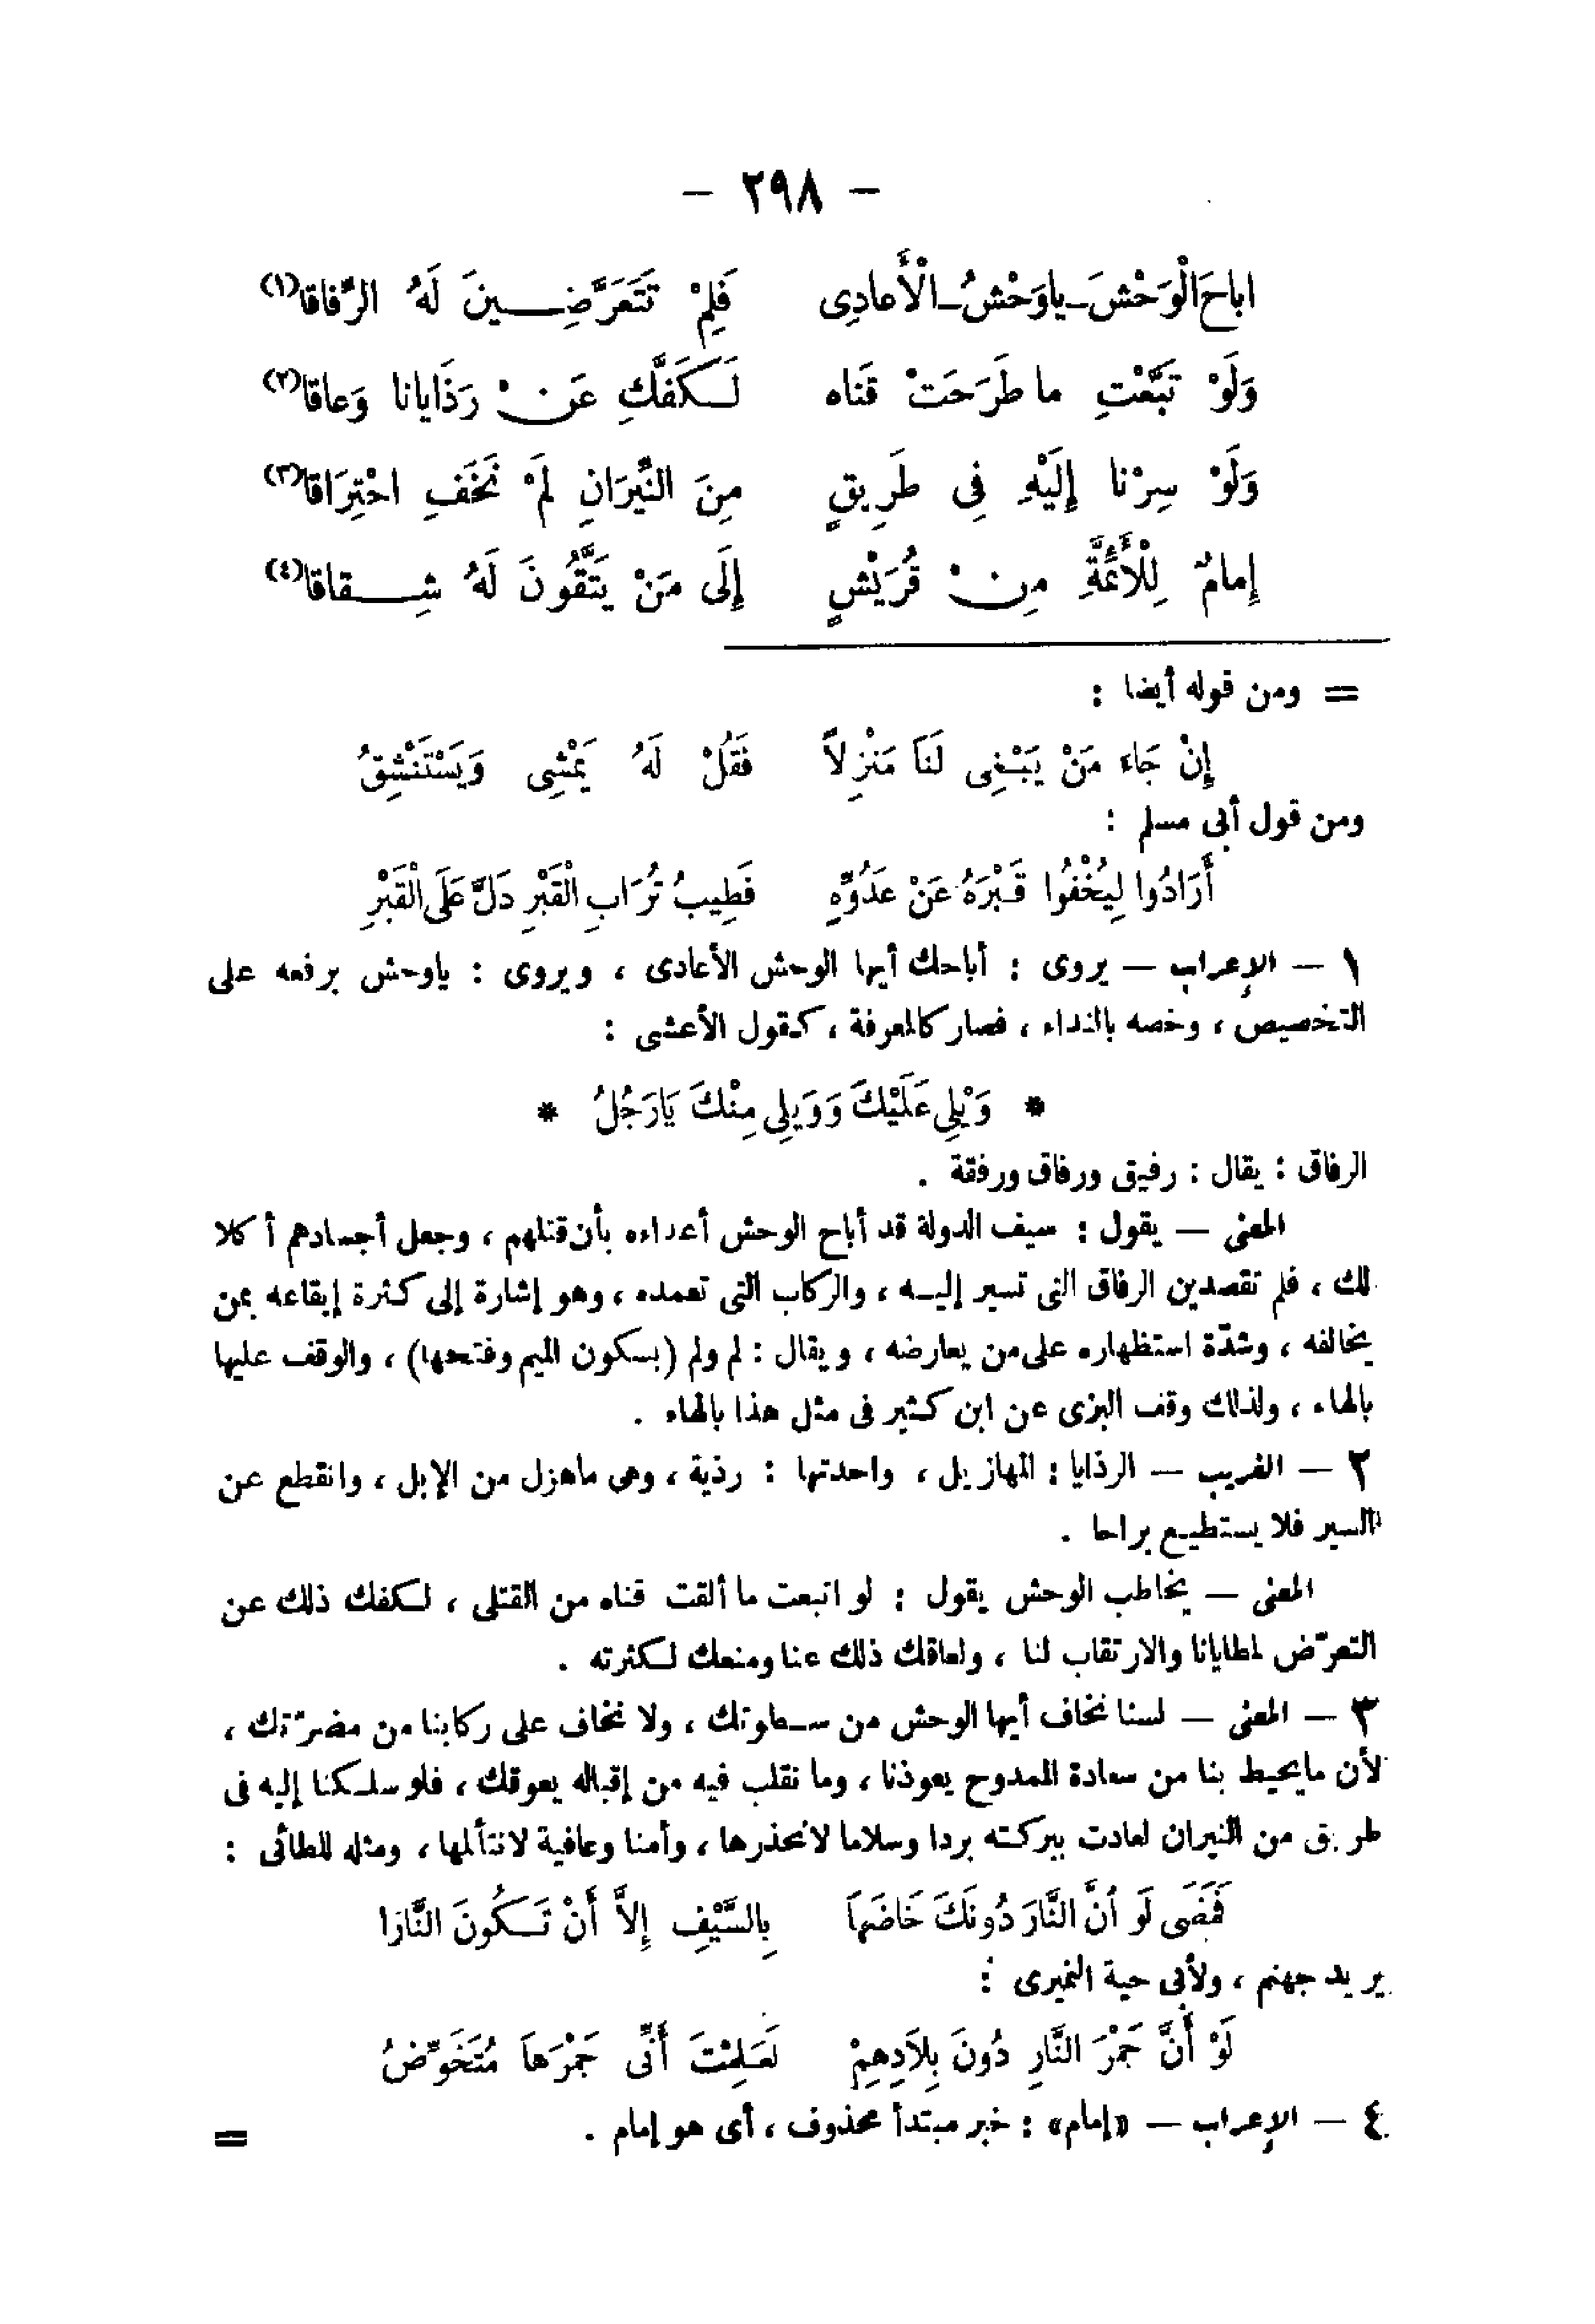 — ٢٩٨ —
اباحَ الْوَحْشَ ـ ياوَحْشُ ـ الْأَعادِى فَلِمْ تَتَعَرَّضِـــينَ لَهُ الرِّفاقا(١)
وَلَوْ تَبَّعْتِ ما طَرَحَتْ قَناه لَـكَفَّكِ عَنْ رَذَايانا وَعاقا(٢)
وَلَوْ سِرْنا إِلَيْهِ فِى طَرِيقٍ مِنَ النِّيرَانِ لَمْ نَخَفِ احْتِرَاقا(٣)
إِمامٌ لِلْأَئِمَّةِ مِنْ قُرَيْشٍ إِلَى مَنْ يَتَّقُونَ لَهُ شِـــقاقا(٤)
= ومن قوله أيضا :
إِنْ جَاء مَنْ يَبْـغِى لَنَا مَنْزِلاً فَقُلْ لَهُ يَمْشِى وَيَسْتَنْشِقُ
ومن قول أبى مسلم :
أَرَادُوا لِيُخْفُوا قَـبْرَهُ عَنْ عَدُوِّهِ فَطِيبُ تُرَابِ الْقَبْرِ دَلَّ عَلَى الْقَبْرِ
١ — الإعراب — يروى : أباحك أيها الوحش الأعادى ، ويروى : ياوحش برفعه على
التخصيص ، وخصه بالنداء ، فصار كالمعرفة ، كـقول الأعشى :
* وَيْلِى عَلَيْكَ وَوَيلِى مِنْكَ يَارَجُلُ *
الرفاق : يقال : رفيق ورفاق ورفقة .
المعنى — يقول : سيف الدولة قد أباح الوحش أعداءه بأن قتلهم ، وجعل أجسادهم أكلا
لك ، فلم تقصدين الرفاق التى تسير إليـه ، والركاب التى تعمده ، وهو إشارة إلى كثرة إيقاعه بمن
يخالفه ، وشدّة استظهاره على من يعارضه ، ويقال : لم ولم (بسكون الميم وفتحها) ، والوقف عليها
بالهاء ، ولذلك وقف البزى عن ابن كـثير فى مثل هذا بالهاء .
٢ — الغريب — الرذايا : المهازيل ، واحدتها : رذية ، وهى ماهزل من الإبل ، وانقطع عن
السير فلا يستطيـع براحا .
المعنى — يخاطب الوحش يقول : لو اتبعت ما ألقت قناه من القتلى ، لـكفك ذلك عن
التعرّض لمطايانا والارتقاب لنا ، ولعاقك ذلك عنا ومنعك لـكثرته .
٣ — المعنى — لسنا نخاف أيها الوحش من سـطوتك ، ولا نخاف على ركابنا من مضرّتك ،
لأن مايحيط بنا من سعادة الممدوح يعوذنا ، وما نقلب فيه من إقباله يعوقك ، فلو سلـكنا إليه فى
طريق من النيران لعادت ببركته بردا وسلاما لانحذرها ، وأمنا وعافية لانتألمها ، ومثله للطائى :
فَمَضَى لَو أنَّ النَّارَ دُونَكَ خَاضَهَا بِالسَّيْفِ إِلاَّ أَنْ تَـكُونَ النَّارَا
يريد جهنم ، ولأبى حية النميرى :
لَوْ أَنَّ جَمْرَ النَّارِ دُونَ بِلاَدِهِمْ لَعَـلِمْتَ أَنِّى جَمْرَهَا مُتَخَوِّضُ
٤ — الإعراب — «إمام» : خبر مبتدأ محذوف ، أى هو إمام . =